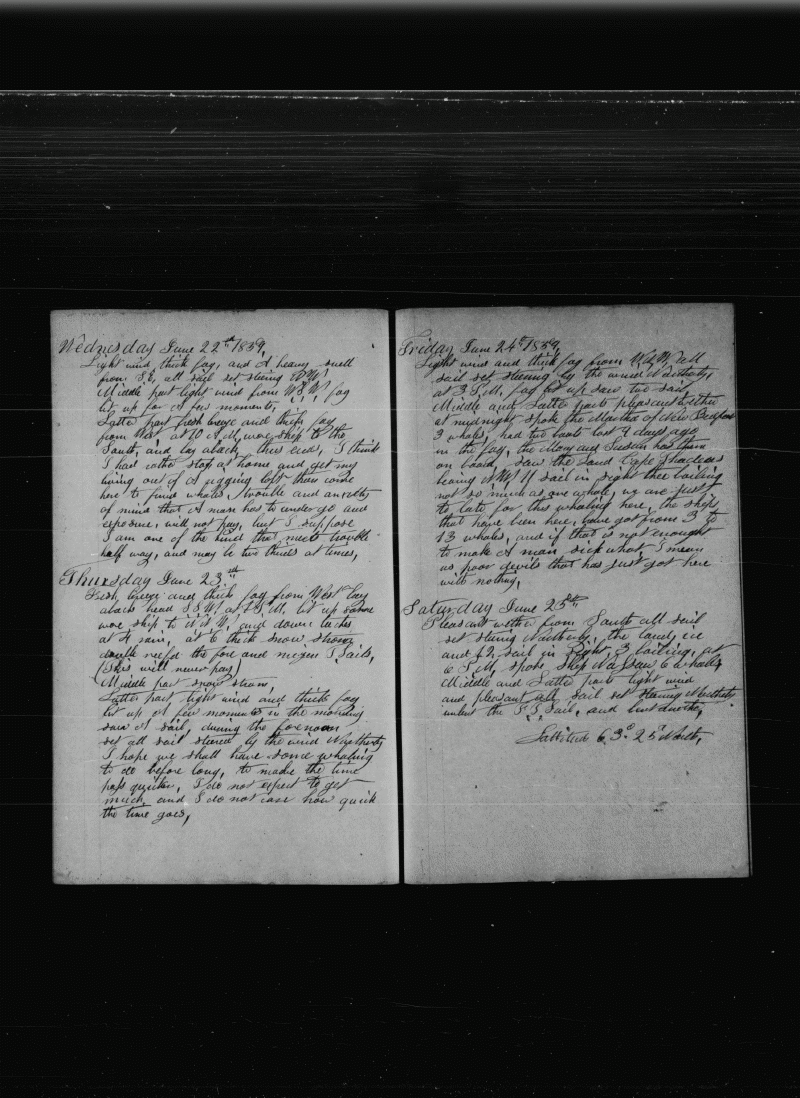 Wednesday June 22nd 1859,
Light wind thick fog, and A heavy swell
from S.E, all sail set steering N.W.
Middle part light wind from W.S.W, fog
lit up for A few moments,
Latter part fresh breeze and thick fog
from West at 10 A.M, wore ship to the
South, and lay aback, thus ends, I think
I had rather stop at home and get my
living out of A rigging loft than come
here to find whales, Trouble and anxiety
of mind that A man has to undergo and
exposure, will not pay, but I suppose
I am one of the kind that meets trouble
half way, and may be two thirds at times,
Thursday June 23rd
Fresh breeze and thick fog from West lay
aback head S.S.W. at 2 P.M. lit up some
wore ship to N.N.W. and down tacks
at 4 rain, at 6 thick snow storm
double reef'd the fore and mizen T.Sails,
(this will never pay)
Middle part snow storm,
Latter part light wind and thick fog
lit up A few moments in the morning
saw A sail, during the forenoon
set all sail steered by the wind Northerly
I hope we shall have some whaling
to do before long, to make the time
pass quicker, I do not expect to get
much, and I do not care how quick
the time goes,
Friday June 24th 1859,
Light wind and thick fog from W.N.W. all
sail set steering by the wind Northerly,
at 3 P.M. fog lit up saw two sail
Middle and Latter parts pleasant wether
at midnight spoke the Martha of New Bedford
3 whales, had two boats lost 9 days ago
in the fog, the Mary and Susan has them
on board, saw the land Cape Thadeus
bearing N.W. 11 sail in sight three boiling
not so much as one whale, we are just
to late for this whaling here, the ships
that have been here, have got from 3 to
13 whales, and if that is not enought
to make A man sick what I mean
us poor devils that has just got here
with nothing,
Saturday June 25th
Pleasant wether from South all sail
set steering Northerly, the land, ice
and 12 sail in sight, 3 boiling, at
6 P.M, spoke ship Warsaw 6 whales
Middle and Latter parts light wind
and pleasant all sail set steering Northerly
unbent the sail, and bent another,
Lattitude 63° 25' North,